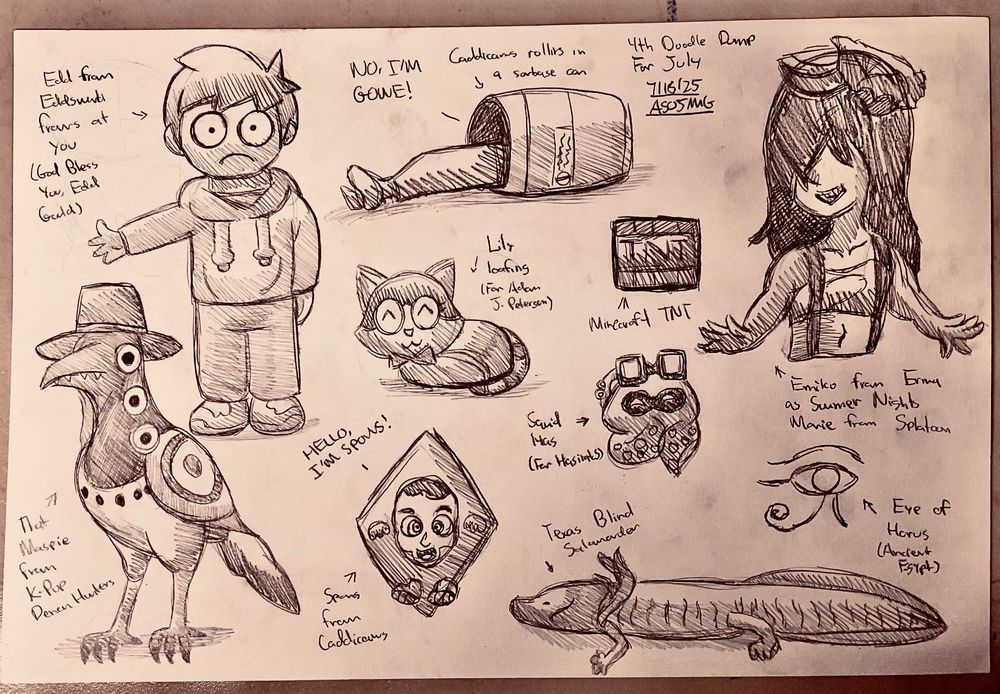 Edd from
Eddsworld
frowns at
you
(God Bless
You, Edd
Gould)
NO, I'M
GONE!
Caddicarus rolling in
a garbage can
4th Doodle Dump
For July
7/16/25
ASOJMG
TNT
Minecraft TNT
Lily
loafing
(For Adam
J. Peterson)
Emiko from Erma
as Summer Nights
Marie from Splatoon
Squid
Mas
(For Hasinabs)
HELLO,
I'M SPONS!
Spons
from
Caddicarus
That
Magpie
from
K-Pop
Demon Hunters
Texas Blind
Salamander
Eye of
Horus
(Ancient
Egypt)